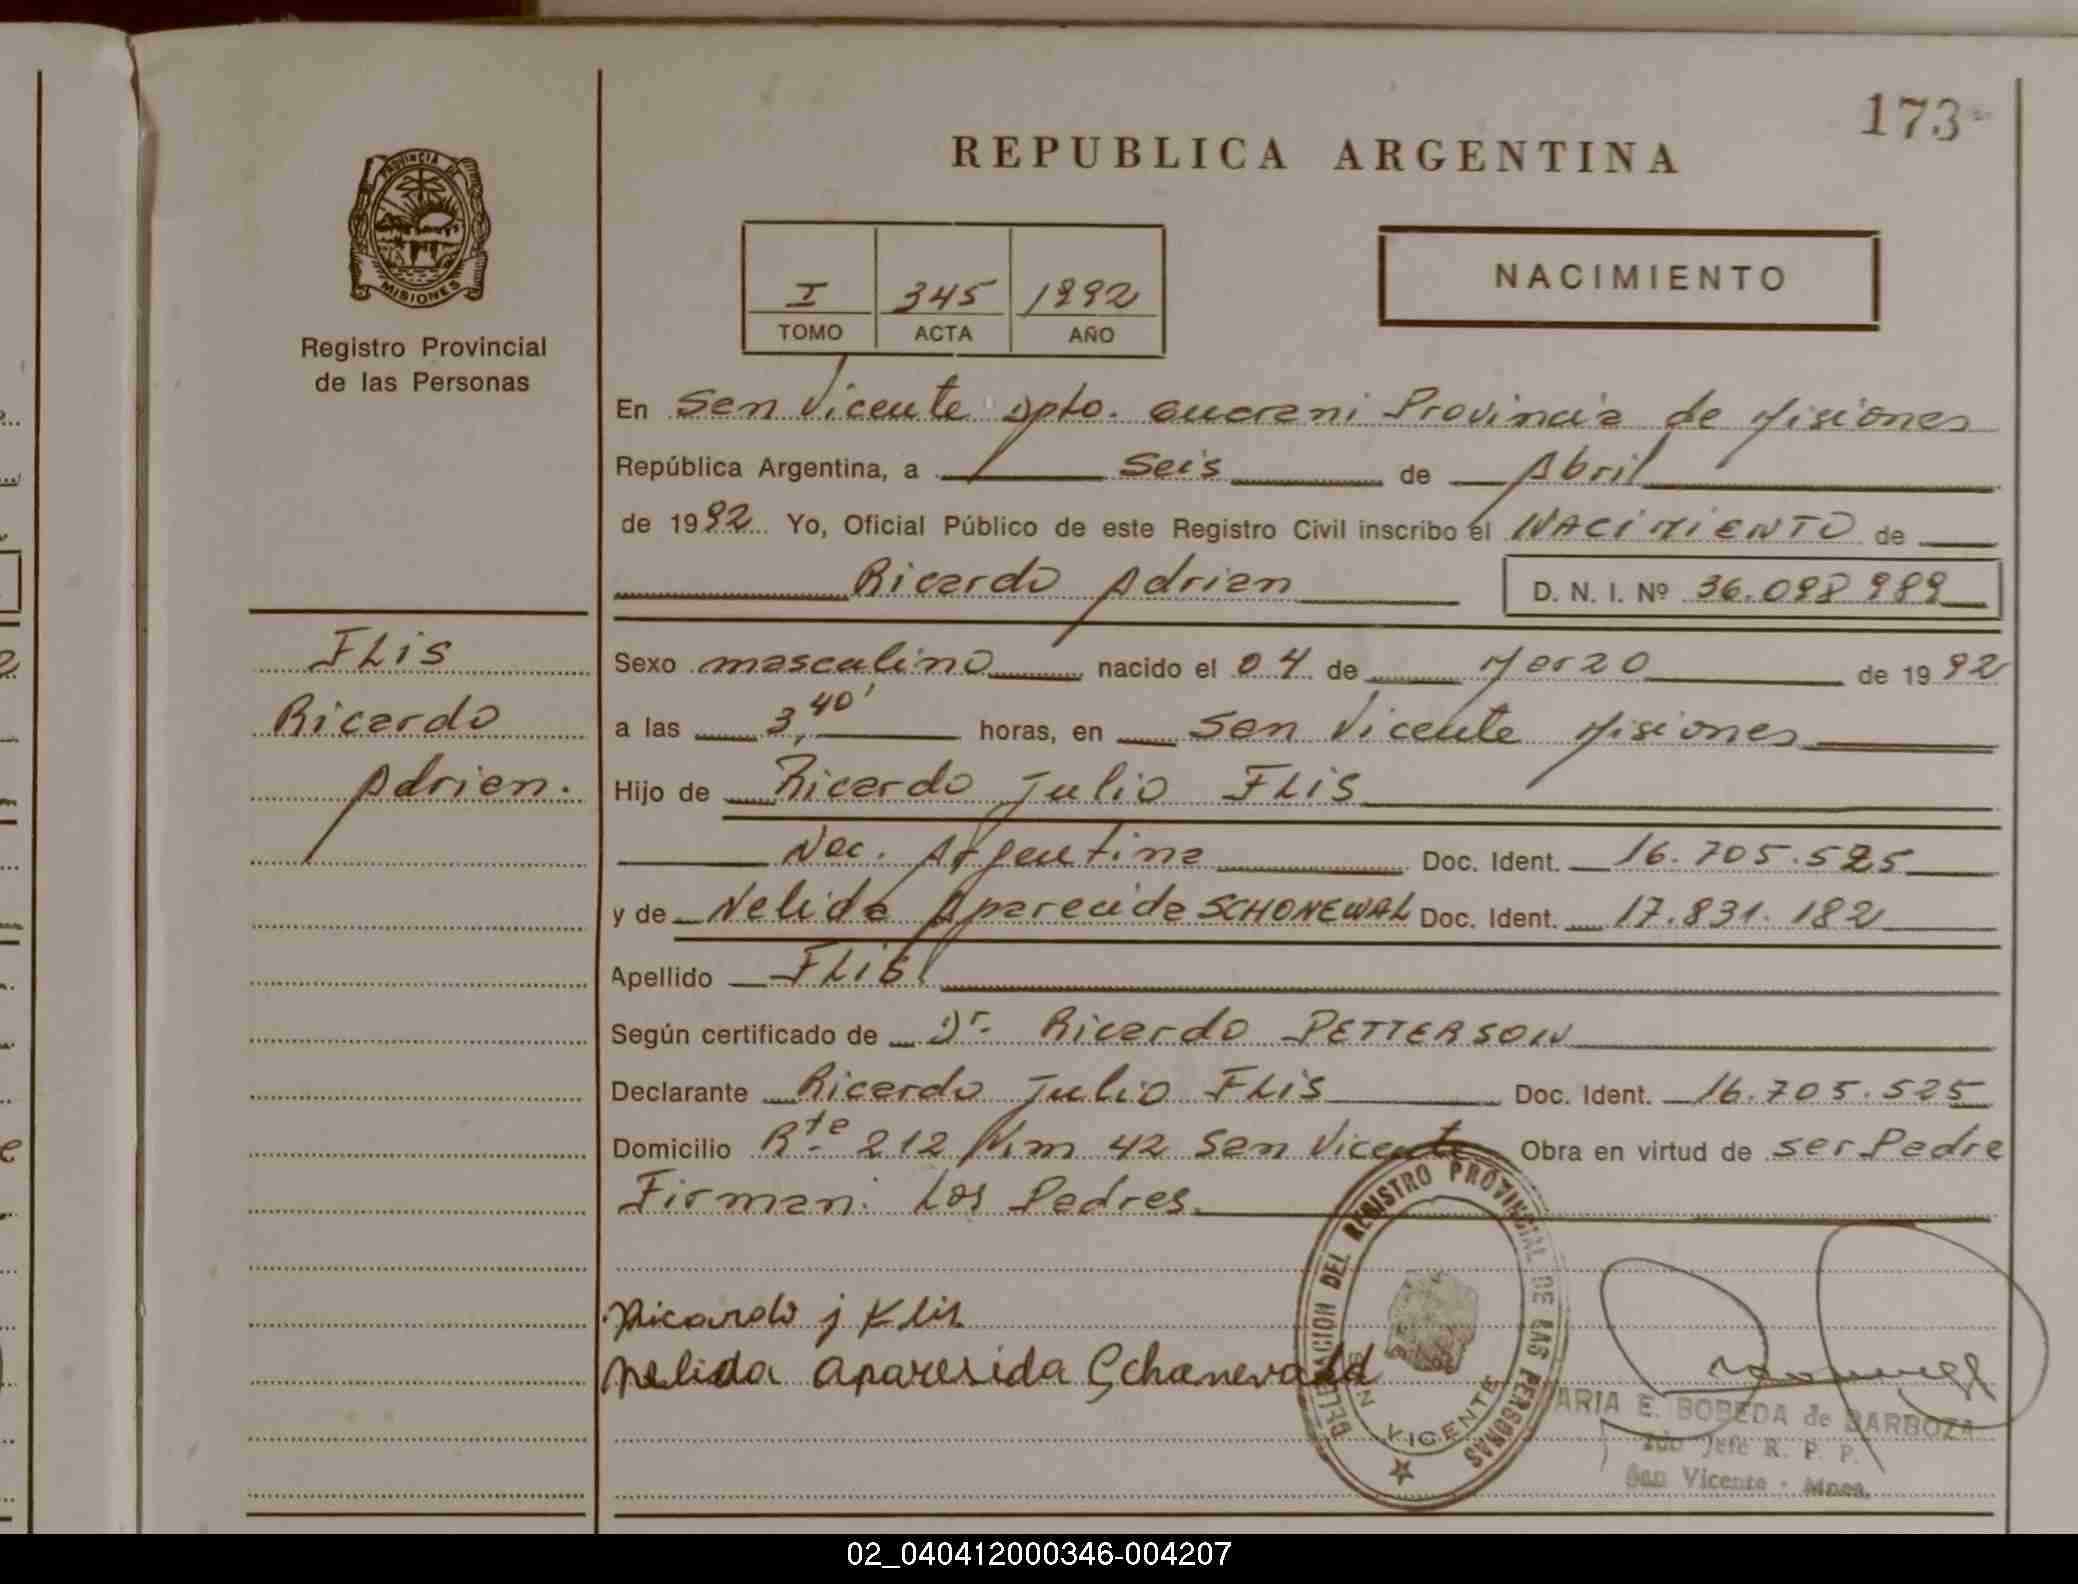 173
REPUBLICA ARGENTINA
PROVINCIA DE
MISIONES
Registro Provincial
de las Personas
I 345 1992
TOMO ACTA AÑO
NACIMIENTO
En San Vicente Dpto. Guarani Provincia de Misiones
República Argentina, a Seis de Abril
de 1992 Yo, Oficial Público de este Registro Civil inscribo el NACIMIENTO de
Ricardo Adrian D. N. I. Nº 36.098 989
FLis
Ricardo
Adrian.
Sexo masculino nacido el 04 de Marzo de 1992
a las 3,40' horas, en San Vicente Misiones
Hijo de Ricardo Julio FLis
Nac. Argentina Doc. Ident. 16.705.525
y de Nelida Aparecida SCHONEWAL Doc. Ident. 17.831.182
Apellido FLis
Según certificado de Dr. Ricardo PETTERSON
Declarante Ricardo Julio FLis Doc. Ident. 16.705.525
Domicilio Rte 212 Km 42 San Vicente Obra en virtud de ser Padre
Firman: Los Padres
Ricardo j Klis
Nelida Aparesida Schanevald
DELEGACION DEL REGISTRO PROVINCIAL DE LAS PERSONAS
SAN VICENTE
ARIA E. BOBEDA de BARBOZA
Jefe R. P. P.
San Vicente - Mnes.
02_040412000346-004207